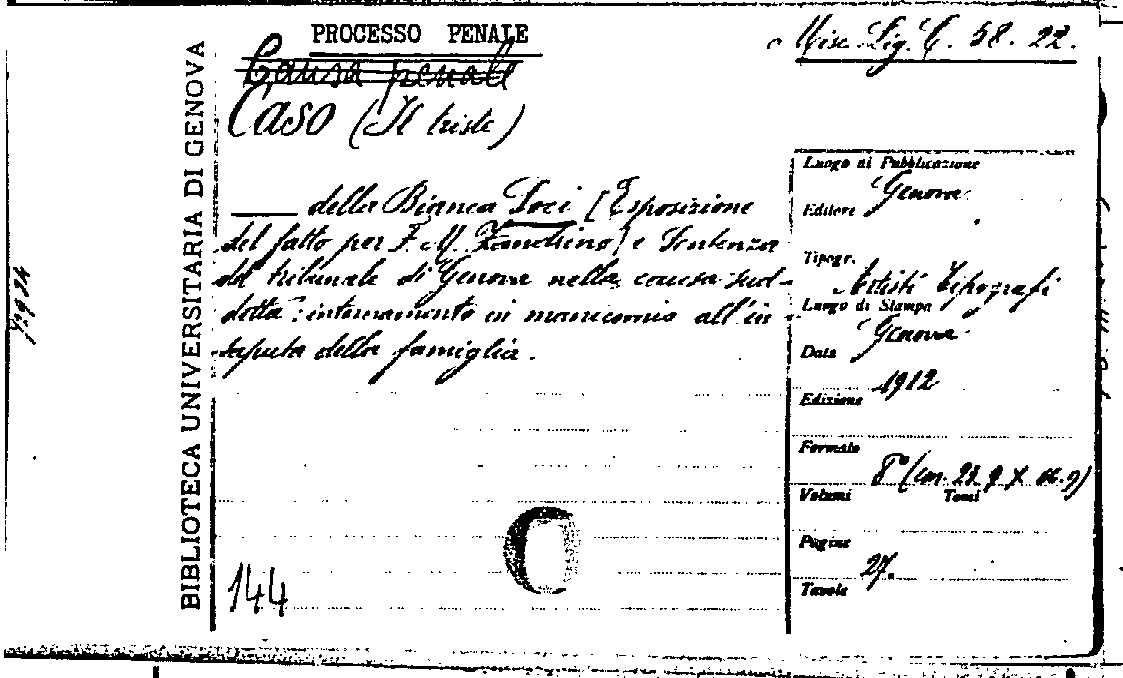 PROCESSO PENALE
Misc. Lig. C. 58. 22.
Causa penale
Caso (Il triste)
BIBLIOTECA UNIVERSITARIA DI GENOVA
della Bianca Loci [Esposizione
del fatto per F. M. Zandrino] e Sentenza
del tribunale di Genova nella causa sud-
detta: internamento in manicomio all'in-
saputa della famiglia.
144
Luogo di Pubblicazione
Genova
Editore
Tipogr.
Artisti Tipografi
Luogo di Stampa
Genova
Data
1912
Edizione
Formato
8° (cm.
Volumi Tomi
Pagine
27.
Tavole